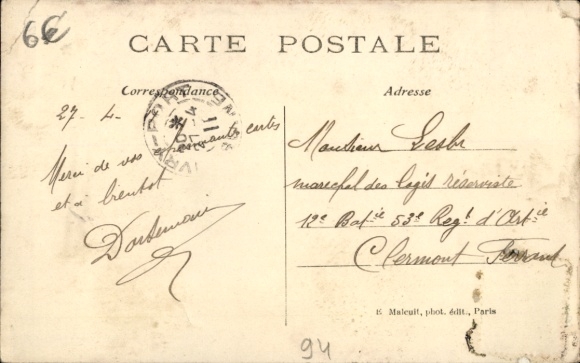 6€
CARTE POSTALE
Correspondance
Adresse
27-4-
Merci de vos ravissantes cartes
et à bientot
Monsieur Lesbr
marechal des logis réserviste
12e Batie 53e Regt d'Artie
Clermont Ferrand
E. Malcuit, phot. édit., Paris
94